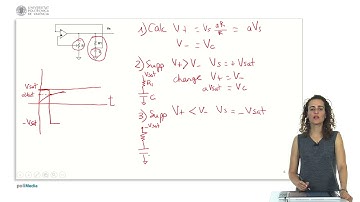 UNIVERSITAT
POLITÈCNICA
DE VALÈNCIA
1) Calc V+ = Vs aR/R = aVs
V- = Vc
2) Supp V+ > V- Vs = + Vsat
change V+ = V-
aVsat = Vc
Vsat
R1
C
3) Supp V+ < V- Vs = - Vsat
-Vsat
Vsat
aVsat
-Vsat
t
poliMedia